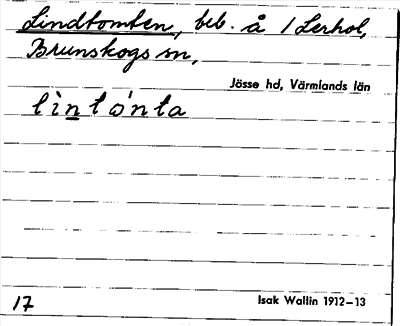 Lindtomten, beb. å 1 Lerhol,
Brunskogs sn,
Jösse hd, Värmlands län
lìntónta
17
Isak Wallin 1912–13